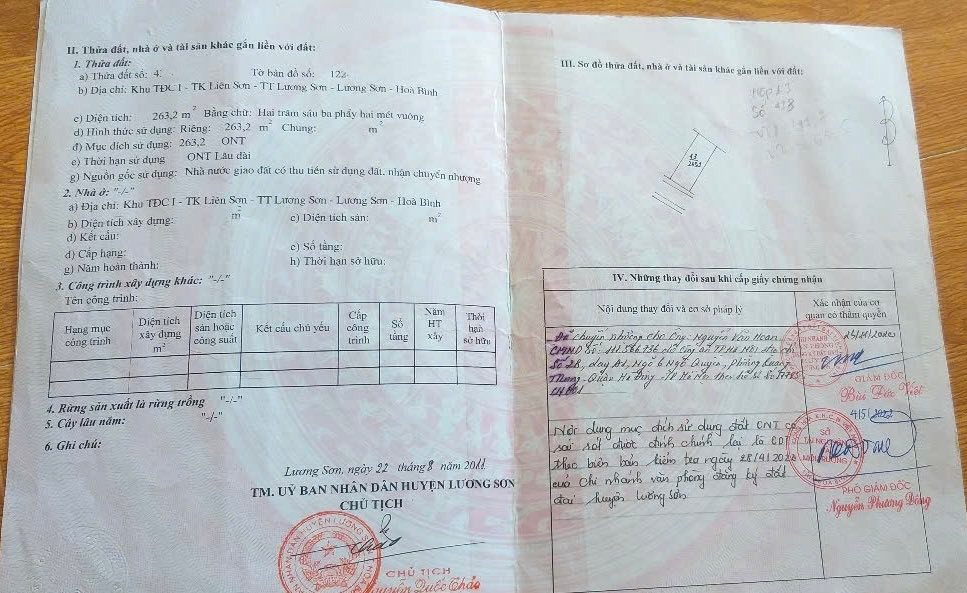 II. Thửa đất, nhà ở và tài sản khác gắn liền với đất:
1. Thửa đất:
a) Thửa đất số: 4 Tờ bản đồ số: 122
b) Địa chỉ: Khu TĐC I - TK Liên Sơn - TT Lương Sơn - Lương Sơn - Hoà Bình
c) Diện tích: 263,2 m² Bằng chữ: Hai trăm sáu ba phẩy hai mét vuông
d) Hình thức sử dụng: Riêng: 263,2 m² Chung: m²
đ) Mục đích sử dụng: 263,2 ONT
e) Thời hạn sử dụng ONT Lâu dài
g) Nguồn gốc sử dụng: Nhà nước giao đất có thu tiền sử dụng đất, nhận chuyển nhượng
2. Nhà ở: "-/-"
a) Địa chỉ: Khu TĐC I - TK Liên Sơn - TT Lương Sơn - Lương Sơn - Hoà Bình
b) Diện tích xây dựng: m² c) Diện tích sàn: m²
d) Kết cấu:
đ) Cấp hạng: e) Số tầng:
g) Năm hoàn thành: h) Thời hạn sở hữu:
3. Công trình xây dựng khác: "-/-"
Tên công trình:
Hạng mục công trình
Diện tích xây dựng m²
Diện tích sàn hoặc công suất
Kết cấu chủ yếu
Cấp công trình
Số tầng
Năm HT xây
Thời hạn sở hữu
4. Rừng sản xuất là rừng trồng "-/-"
5. Cây lâu năm: "-/-"
6. Ghi chú:
Lương Sơn, ngày 22 tháng 8 năm 2011
TM. UỶ BAN NHÂN DÂN HUYỆN LƯƠNG SƠN
CHỦ TỊCH
CHỦ TỊCH
Nguyễn Quốc Thảo
III. Sơ đồ thửa đất, nhà ở và tài sản khác gắn liền với đất:
IV. Những thay đổi sau khi cấp giấy chứng nhận
Nội dung thay đổi và cơ sở pháp lý
Xác nhận của cơ quan có thẩm quyền
Đã chuyển nhượng cho Ông: Nguyễn Văn Hoan
CMND Số: công an TP Hà Nội địa chỉ
Số 28, dãy A1, Ngõ 6 Ngô Quyền, Phường Quang
Trung - Quận Hà Đông - TP Hà Nội theo hồ sơ số
GIÁM ĐỐC
Bùi Đức Việt
Nội dung mục đích sử dụng đất ONT có
sai sót được đính chính lại là ODT
theo biên bản kiểm tra ngày 28/4/2022
của Chi nhánh văn phòng đăng ký đất
đai huyện Lương Sơn
PHÓ GIÁM ĐỐC
Nguyễn Phương Đông